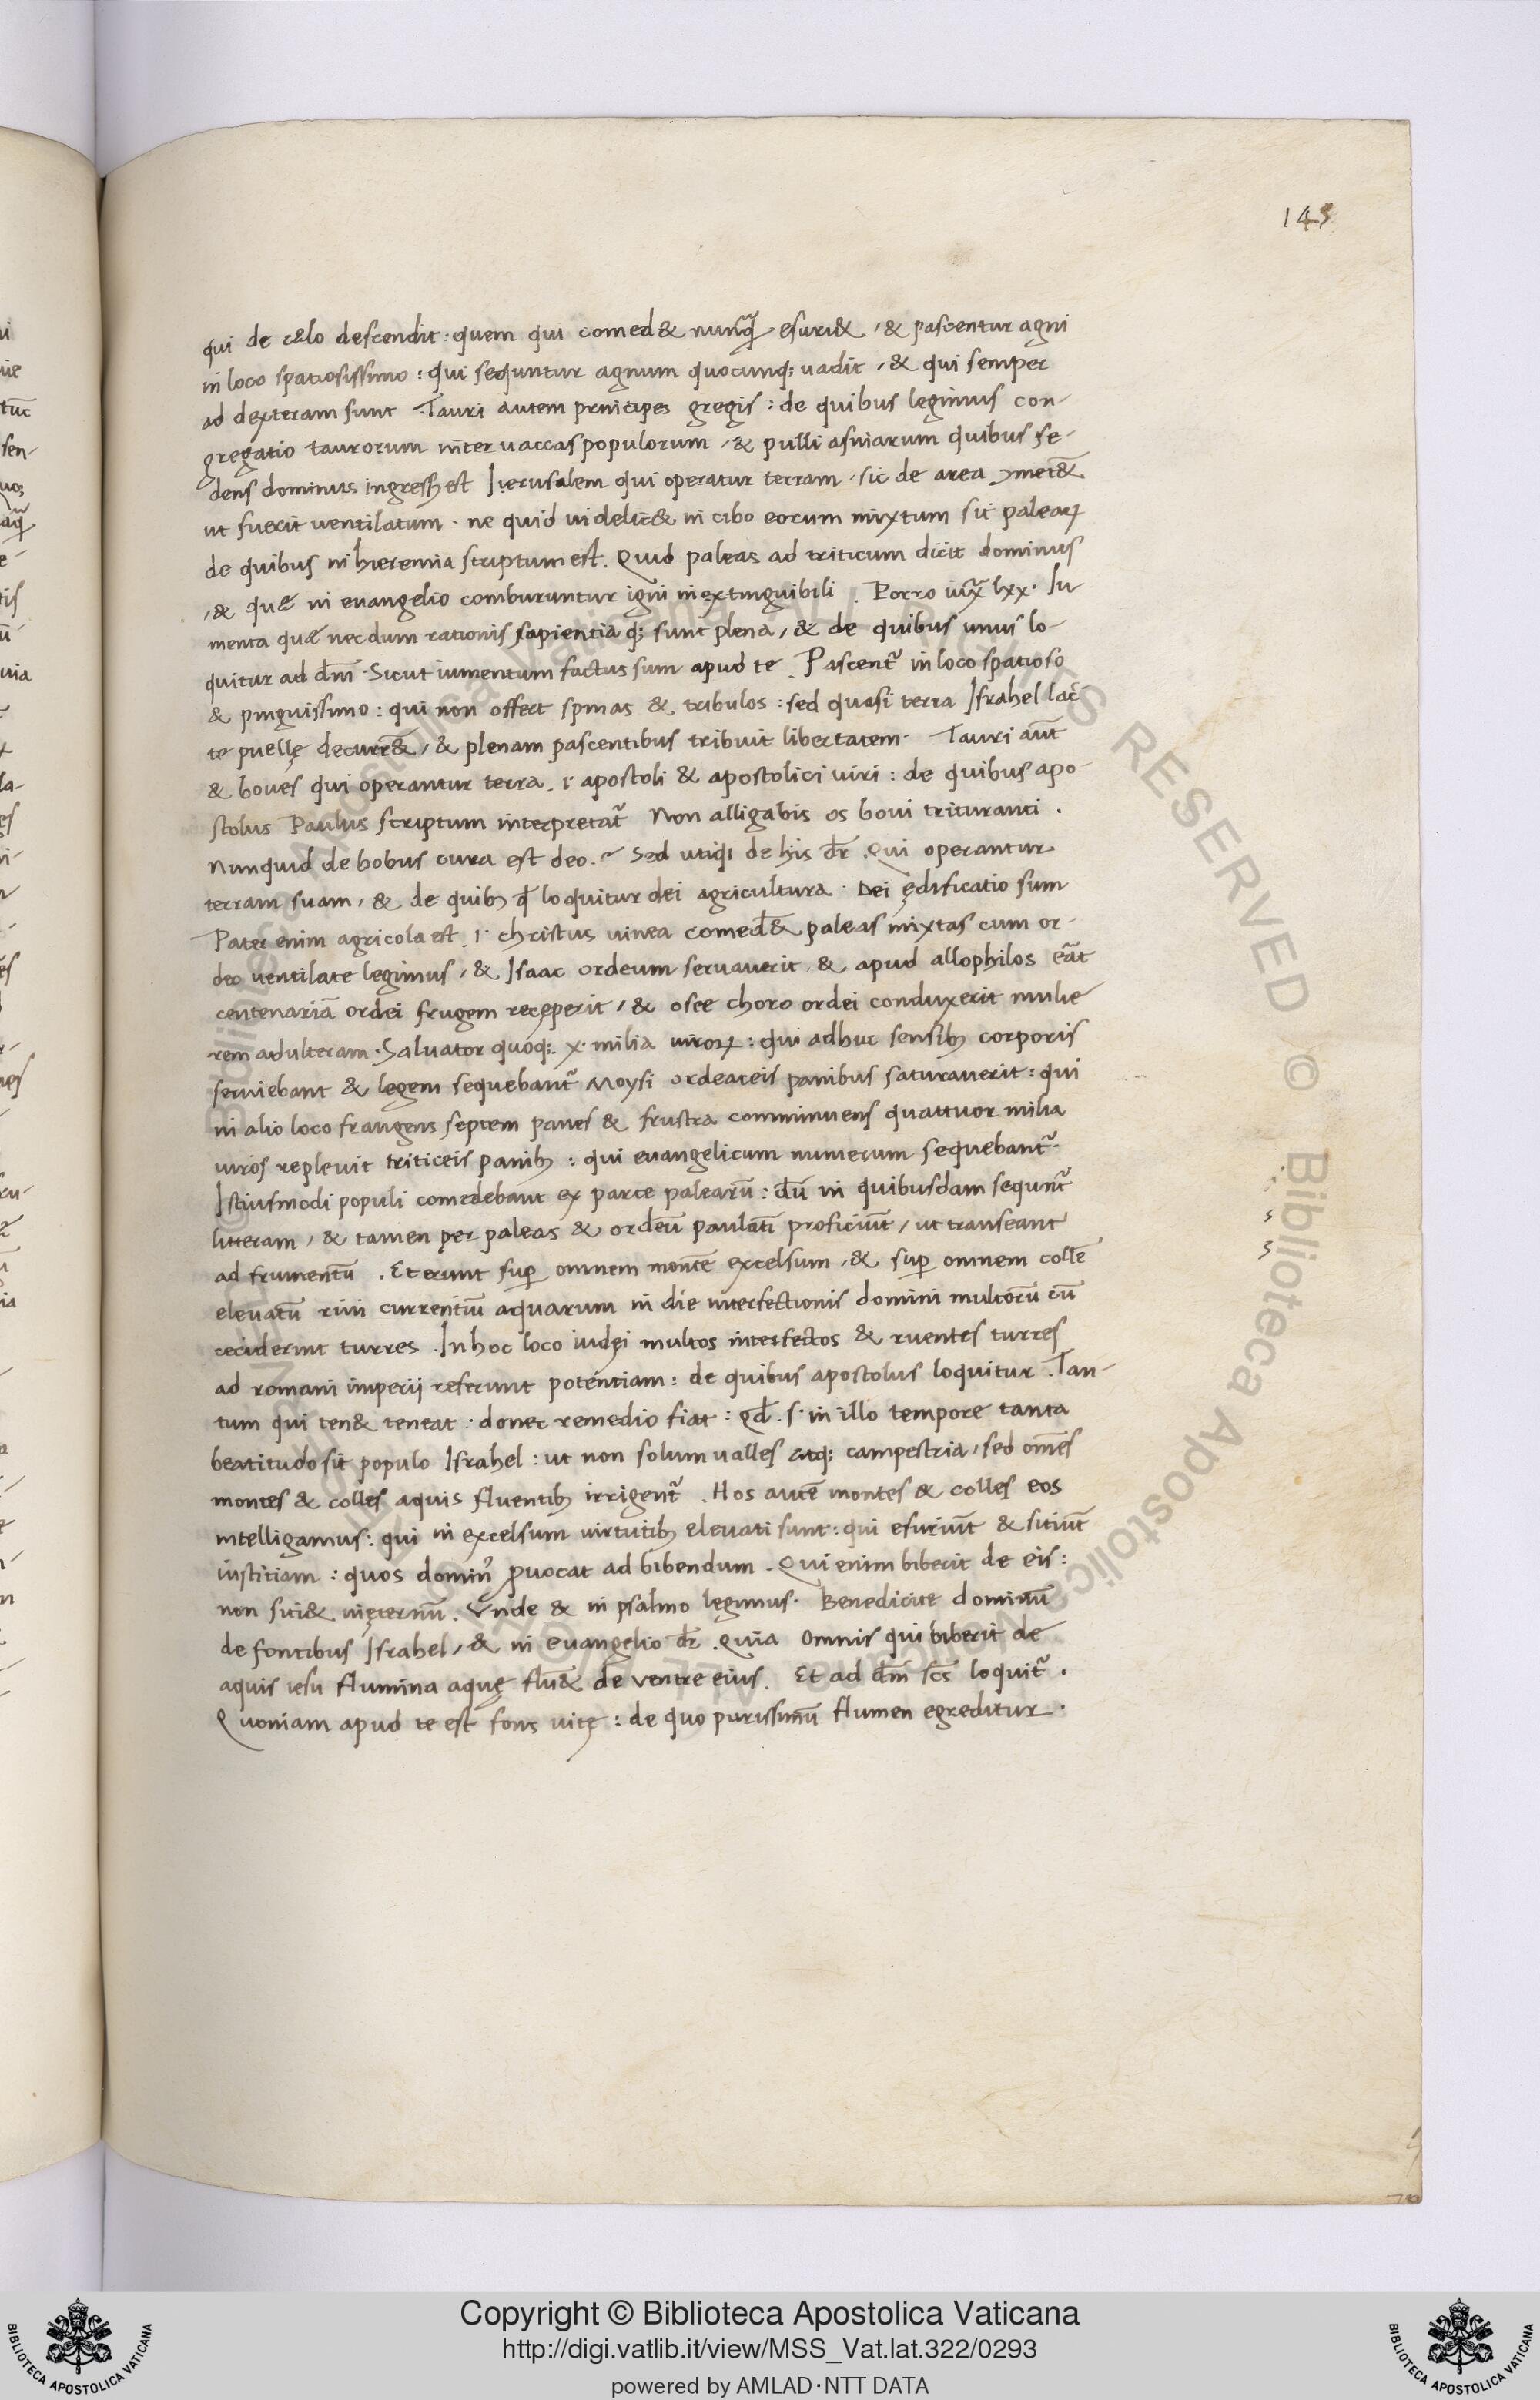 143
qui de c&lo descendit : quem qui comed& nunq̃ esuri& , & pascentur agni
in loco spatiosissimo : qui sequntur agnum quocunq; uadit , & qui semper
ad dexteram sunt . Tauri autem principes gregis : de quibus legimus con-
gregatio taurorum inter uaccas populorum , & pulli asinarum quibus se-
dens dominus ingressꝰ est Iierusalem qui operatur terram , sic de area
ut fuerit uentilatum . ne quid uidelic& in cibo eorum mixtum sit palearꝝ
de quibus in hieremia scriptum est . Quid paleas ad triticum dicit dominus
, & quæ in euangelio comburuntur igni inextinguibili . Porro iux̃ lxx . Iu
menta quæ necdum rationis sapientia q; sunt plena , & de quibus unus lo-
quitur ad dm̃ . Sicut iumentum factus sum apud te . Pascent᷑ in loco spatioso
& pinguissimo : qui non offert spinas & tribulos : sed quasi terra Israhel lac̄
te puellę decurr& , & plenam pascentibus tribuit libertatem . Tauri aūt
& boues qui operantur terra . i apostoli & apostolici uiri : de quibus apo-
stolus Paulus scriptum interpretat᷑ Non alligabis os boui trituranti .
Nunquid de bobus cura est deo . ~ Sed utiq; de his dr̄ . Qui operantur
terram suam , & de quibꝫ q̄ loquitur dei agricultura . Dei ędificatio sum
Pater enim agricola est . i christus uinea comed& paleas mixtas cum or-
deo uentilate legimus , & Isaac ordeum seruauerit , & apud allophilos
centenariā ordei frugem reçeperit , & osee choro ordei conduxerit mulie
rem adulteram . Saluator quoq; . x . milia uirorꝝ : qui adhuc sensibꝫ corporis
seruiebant & legem sequebant᷑ Moysi ordeaceis panibus saturauerit : qui
in alio loco frangens septem panes & frustra comminuens quattuor milia
uiros repleuit triticeis panibꝫ : qui euangelicum numerum sequebant᷑ .
Istiusmodi populi comedebant ex parte palearū : dū in quibusdam sequnt᷑
litteram , & tamen per paleas & ordeū paulāti proficiūt , ut transeant
ad frumentū . Et erunt suꝑ omnem montē excelsum , & suꝑ omnem collē
eleuatū riui currentiū aquarum in die interfectionis domini multorū cū
ceciderint turres . In hoc loco iudęi multos interfectos & ruentes turres
ad romani imperij referunt potentiam : de quibus apostolus loquitur . Tan-
tum qui ten& teneat : donec remedio fiat : qd̄ . s . in illo tempore tanta
beatitudo sit populo Israhel : ut non solum ualles atq; campestria , sed om̄es
montes & colles aquis fluentibꝫ irrigent᷑ . Hos autē montes & colles eos
intelligamus : qui in excelsum uirtutibꝫ eleuati sunt : qui esuriūt & sitiūt
iustitiam : quos dominꝰ ꝓuocat ad bibendum . Qui enim biberit de eis :
non siti& inęternū . Vnde & in psalmo legimus . Benedicite dominū
de fontibus Israhel , & in euangelio dr̄ . Quia Omnis qui biberit de
aquis iesu flumina aquę flu& de ventre eius . Et ad dm̄ sc̄s loquit᷑ .
Quoniam apud te est fons uitę : de quo purissimū flumen egreditur .
Copyright © Biblioteca Apostolica Vaticana
http://digi.vatlib.it/view/MSS_Vat.lat.322/0293
powered by AMLAD·NTT DATA